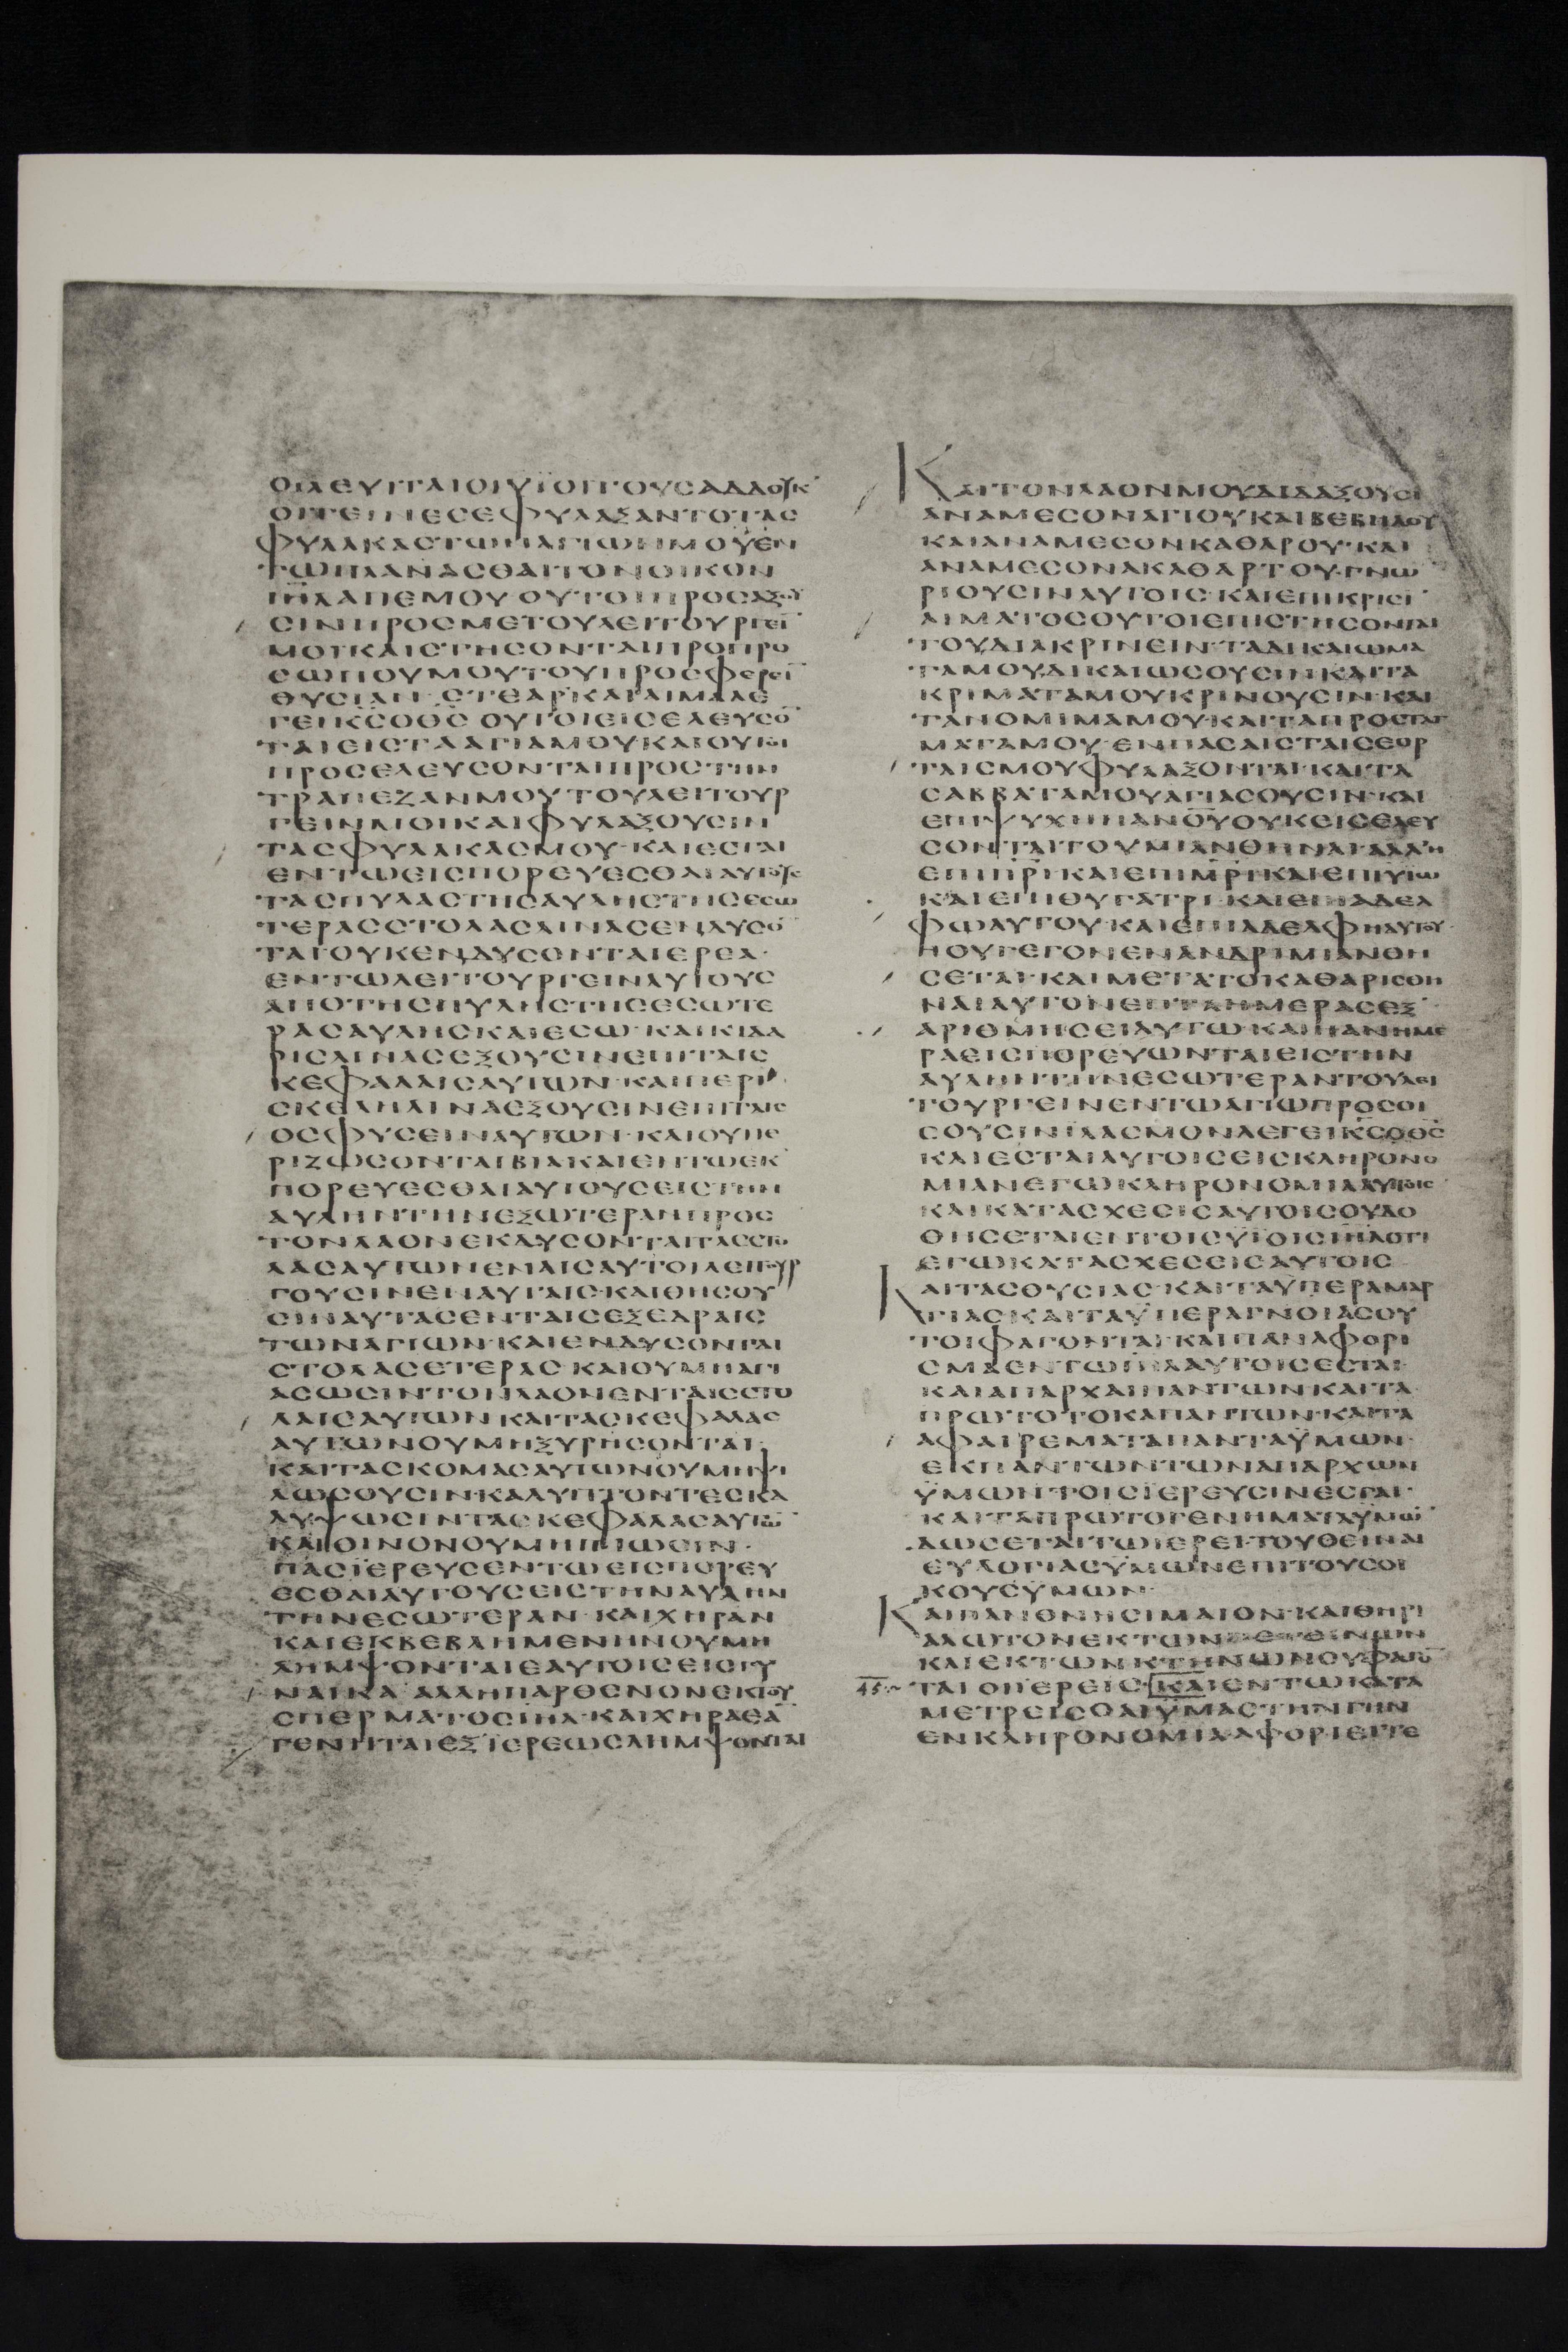 ΟΙΛΕΥΙΤΑΙΟΙΥΪΟΙΤΟΥΣΑΔΔΟΥΚ
ΟΙΤΕΙΝΕΣΕΦΥΛΑΞΑΝΤΟΤΑΣ
ΦΥΛΑΚΑΣΤΩΝΑΓΙΩΝΜΟΥΕΝ
ΤΩΠΛΑΝΑΣΘΑΙΤΟΝΟΙΚΟΝ
ΙΗΛΑΠΕΜΟΥ ΟΥΤΟΙΠΡΟΣΑΞΟΥ
ΣΙΝΠΡΟΣΜΕΤΟΥΛΕΙΤΟΥΡΓΕΙ̅
ΜΟΙΚΑΙΣΤΗΣΟΝΤΑΙΠΡΟΠΡΟ
ΣΩΠΟΥΜΟΥΤΟΥΠΡΟΣΦΕΡΕΙ̅
ΘΥΣΙΑΝ ΣΤΕΑΡΚΑΙΑΙΜΑΛΕ
ΓΕΙΚ̅Σ̅ΟΘ̅Σ̅ ΟΥΤΟΙΕΙΣΕΛΕΥΣΟ̅
ΤΑΙΕΙΣΤΑΑΓΙΑΜΟΥΚΑΙΟΥΤΟΙ
ΠΡΟΣΕΛΕΥΣΟΝΤΑΙΠΡΟΣΤΗΝ
ΤΡΑΠΕΖΑΝΜΟΥΤΟΥΛΕΙΤΟΥΡ
ΓΕΙΝΜΟΙΚΑΙΦΥΛΑΞΟΥΣΙΝ
ΤΑΣΦΥΛΑΚΑΣΜΟΥ·ΚΑΙΕΣΤΑΙ
ΕΝΤΩΕΙΣΠΟΡΕΥΕΣΘΑΙΑΥΤΟΥΣ
ΤΑΣΠΥΛΑΣΤΗΣΑΥΛΗΣΤΗΣΕΣΩ
ΤΕΡΑΣΣΤΟΛΑΣΛΙΝΑΣΕΝΔΥΣΟ̅
ΤΑΙΟΥΚΕΝΔΥΣΟΝΤΑΙΕΡΕΑ·
ΕΝΤΩΛΕΙΤΟΥΡΓΕΙΝΑΥΤΟΥΣ
ΑΠΟΤΗΣΠΥΛΗΣΤΗΣΕΣΩΤΕ
ΡΑΣΑΥΛΗΣΚΑΙΕΣΩ·ΚΑΙΚΙΔΑ
ΡΙΣΛΙΝΑΣΕΞΟΥΣΙΝΕΠΙΤΑΙΣ
ΚΕΦΑΛΑΙΣΑΥΤΩΝ·ΚΑΙΠΕΡΙ
ΣΚΕΛΗΛΙΝΑΕΞΟΥΣΙΝΕΠΙΤΑΙΣ
ΟΣΦΥΣΕΙΝΑΥΤΩΝ·ΚΑΙΟΥΠΕ
ΡΙΖΩΣΟΝΤΑΙΒΙΑΚΑΙΕΝΤΩΕΚ
ΠΟΡΕΥΕΣΘΑΙΑΥΤΟΥΣΕΙΣΤΗΝ
ΑΥΛΗΝΤΗΝΕΞΩΤΕΡΑΝΠΡΟΣ
ΤΟΝΛΑΟΝΕΚΔΥΣΟΝΤΑΙΤΑΣΣΤΟ
ΛΑΣΑΥΤΩΝΕΝΑΙΣΑΥΤΟΙΛΕΙΤΟΥΡ
ΓΟΥΣΙΝΕΝΑΥΤΑΙΣ·ΚΑΙΘΗΣΟΥ
ΣΙΝΑΥΤΑΣΕΝΤΑΙΣΕΞΕΔΡΑΙΣ
ΤΩΝΑΓΙΩΝ·ΚΑΙΕΝΔΥΣΟΝΤΑΙ
ΣΤΟΛΑΣΕΤΕΡΑΣ·ΚΑΙΟΥΜΗΑΓΙ
ΑΣΩΣΙΝΤΟΝΛΑΟΝΕΝΤΑΙΣΣΤΟ
ΛΑΙΣΑΥΤΩΝ·ΚΑΙΤΑΣΚΕΦΑΛΑΣ
ΑΥΤΩΝΟΥΜΗΞΥΡΗΣΟΝΤΑΙ·
ΚΑΙΤΑΣΚΟΜΑΣΑΥΤΩΝΟΥΜΗΨΙ
ΛΩΣΟΥΣΙΝ·ΚΑΛΥΠΤΟΝΤΕΣΚΑ
ΛΥΨΩΣΙΝΤΑΣΚΕΦΑΛΑΣΑΥΤΩ̅
ΚΑΙΟΙΝΟΝΟΥΜΗΠΙΩΣΙΝ·
ΠΑΣΪΕΡΕΥΣΕΝΤΩΕΙΣΠΟΡΕΥ
ΕΣΘΑΙΑΥΤΟΥΣΕΙΣΤΗΝΑΥΛΗΝ
ΤΗΝΕΣΩΤΕΡΑΝ·ΚΑΙΧΗΡΑΝ
ΚΑΙΕΚΒΕΒΛΗΜΕΝΗΝΟΥΜΗ
ΛΗΜΨΟΝΤΑΙΕΑΥΤΟΙΣΕΙΣΓΥ
ΝΑΙΚΑ ΑΛΛΗΠΑΡΘΕΝΟΝΕΚΤΟΥ
ΣΠΕΡΜΑΤΟΣΙΗΛ·ΚΑΙΧΗΡΑΕΑ̅
ΓΕΝΗΤΑΙΕΞΪΕΡΕΩΣΛΗΜΨΟΝΤΑΙ
ΚΑΙΤΟΝΛΑΟΝΜΟΥΔΙΔΑΞΟΥΣΙ
ΑΝΑΜΕΣΟΝΑΓΙΟΥΚΑΙΒΕΒΗΛΟΥ
ΚΑΙΑΝΑΜΕΣΟΝΚΑΘΑΡΟΥ·ΚΑΙ
ΑΝΑΜΕΣΟΝΑΚΑΘΑΡΤΟΥ·ΓΝΩ
ΡΙΟΥΣΙΝΑΥΤΟΙΣ·ΚΑΙΕΠΙΚΡΙΣΙ̅
ΑΙΜΑΤΟΣΟΥΤΟΙΕΠΙΣΤΗΣΟΝΤΑΙ
ΤΟΥΔΙΑΚΡΙΝΕΙΝ·ΤΑΔΙΚΑΙΩΜΑ
ΤΑΜΟΥΔΙΚΑΙΩΣΟΥΣΙΝ·ΚΑΙΤΑ
ΚΡΙΜΑΤΑΜΟΥΚΡΙΝΟΥΣΙΝ·ΚΑΙ
ΤΑΝΟΜΙΜΑΜΟΥ·ΚΑΙΤΑΠΡΟΣΤΑΓ
ΜΑΤΑΜΟΥ·ΕΝΠΑΣΑΙΣΤΑΙΣΕΟΡ
ΤΑΙΣΜΟΥΦΥΛΑΞΟΝΤΑΙ·ΚΑΙΤΑ
ΣΑΒΒΑΤΑΜΟΥΑΓΙΑΣΟΥΣΙΝ·ΚΑΙ
ΕΠΙΨΥΧΗΝΑΝΟΥΟΥΚΕΙΣΕΛΕΥ
ΣΟΝΤΑΙΤΟΥΜΙΑΝΘΗΝΑΙ·ΑΛΛΗ
ΕΠΙΠΡΙ·ΚΑΙΕΠΙΜΡΙ·ΚΑΙΕΠΙΥΙΩ
ΚΑΙΕΠΙΘΥΓΑΤΡΙ·ΚΑΙΕΠΙΑΔΕΛ
ΦΩΑΥΤΟΥ·ΚΑΙΕΠΙΑΔΕΛΦΗΑΥΤΟΥ·
ΗΟΥΓΕΓΟΝΕΝΑΝΔΡΙΜΙΑΝΘΗ
ΣΕΤΑΙ·ΚΑΙΜΕΤΑΤΟΚΑΘΑΡΙΣΘΗ
ΝΑΙΑΥΤΟΝΕΠΤΑΗΜΕΡΑΣΕΞ
ΑΡΙΘΜΗΣΕΙΑΥΤΩ·ΚΑΙΗΑΝΗΜΕ
ΡΑΕΙΣΠΟΡΕΥΩΝΤΑΙΕΙΣΤΗΝ
ΑΥΛΗΝΤΗΝΕΣΩΤΕΡΑΝΤΟΥΛΕΙ
ΤΟΥΡΓΕΙΝΕΝΤΩΑΓΙΩΠΡΟΣΟΙ
ΣΟΥΣΙΝΙΛΑΣΜΟΝΛΕΓΕΙΚ̅Σ̅ΟΘ̅Σ̅
ΚΑΙΕΣΤΑΙΑΥΤΟΙΣΕΙΣΚΛΗΡΟΝΟ
ΜΙΑΝΕΓΩΚΛΗΡΟΝΟΜΙΑΑΥΤΟΙΣ
ΚΑΙΚΑΤΑΣΧΕΣΙΣΑΥΤΟΙΣΟΥΔΟ
ΘΗΣΕΤΑΙΕΝΤΟΙΣΥΪΟΙΣΙΗΛΟΤΙ
ΕΓΩΚΑΤΑΣΧΕΣΕΙΣΑΥΤΟΙΣ
ΚΑΙΤΑΣΘΥΣΙΑΣ·ΚΑΙΤΑΫΠΕΡΑΜΑΡ
ΤΙΑΣΚΑΙΤΑΫΠΕΡΑΓΝΟΙΑΣΟΥ
ΤΟΙΦΑΓΟΝΤΑΙ·ΚΑΙΠΑΝΑΦΟΡΙ
ΣΜΑΕΝΤΩΙΗΛΑΥΤΟΙΣΕΣΤΑΙ·
ΚΑΙΑΠΑΡΧΑΙΠΑΝΤΩΝ·ΚΑΙΤΑ
ΠΡΩΤΟΤΟΚΑΠΑΝΤΩΝ·ΚΑΙΤΑ
ΑΦΑΙΡΕΜΑΤΑΠΑΝΤΑΫΜΩΝ·
ΕΚΠΑΝΤΩΝΤΩΝΑΠΑΡΧΩΝ
ΫΜΩΝ·ΤΟΙΣΪΕΡΕΥΣΙΝΕΣΤΑΙ·
ΚΑΙΤΑΠΡΩΤΟΓΕΝΗΜΑΤΑΫΜΩ̅
ΔΩΣΕΤΑΙΤΩΪΕΡΕΙ·ΤΟΥΘΕΙΝΑΙ
ΕΥΛΟΓΙΑΣΫΜΩΝΕΠΙΤΟΥΣΟΙ
ΚΟΥΣΫΜΩΝ·
ΚΑΙΠΑΝΘΝΗΣΙΜΑΙΟΝ·ΚΑΙΘΗΡΙ
ΑΛΩΤΟΝΕΚΤΩΝΠΕΤΕΙΝΩΝ
ΚΑΙΕΚΤΩΝΚΤΗΝΩΝΟΥΦΑΓΟ̅
45 ΤΑΙ ΟΙΪΕΡΕΙΣ ΚΑΙΕΝΤΩΚΑΤΑ
ΜΕΤΡΕΙΣΘΑΙΫΜΑΣΤΗΝΓΗΝ
ΕΝΚΛΗΡΟΝΟΜΙΑΑΦΟΡΙΕΙΤΕ